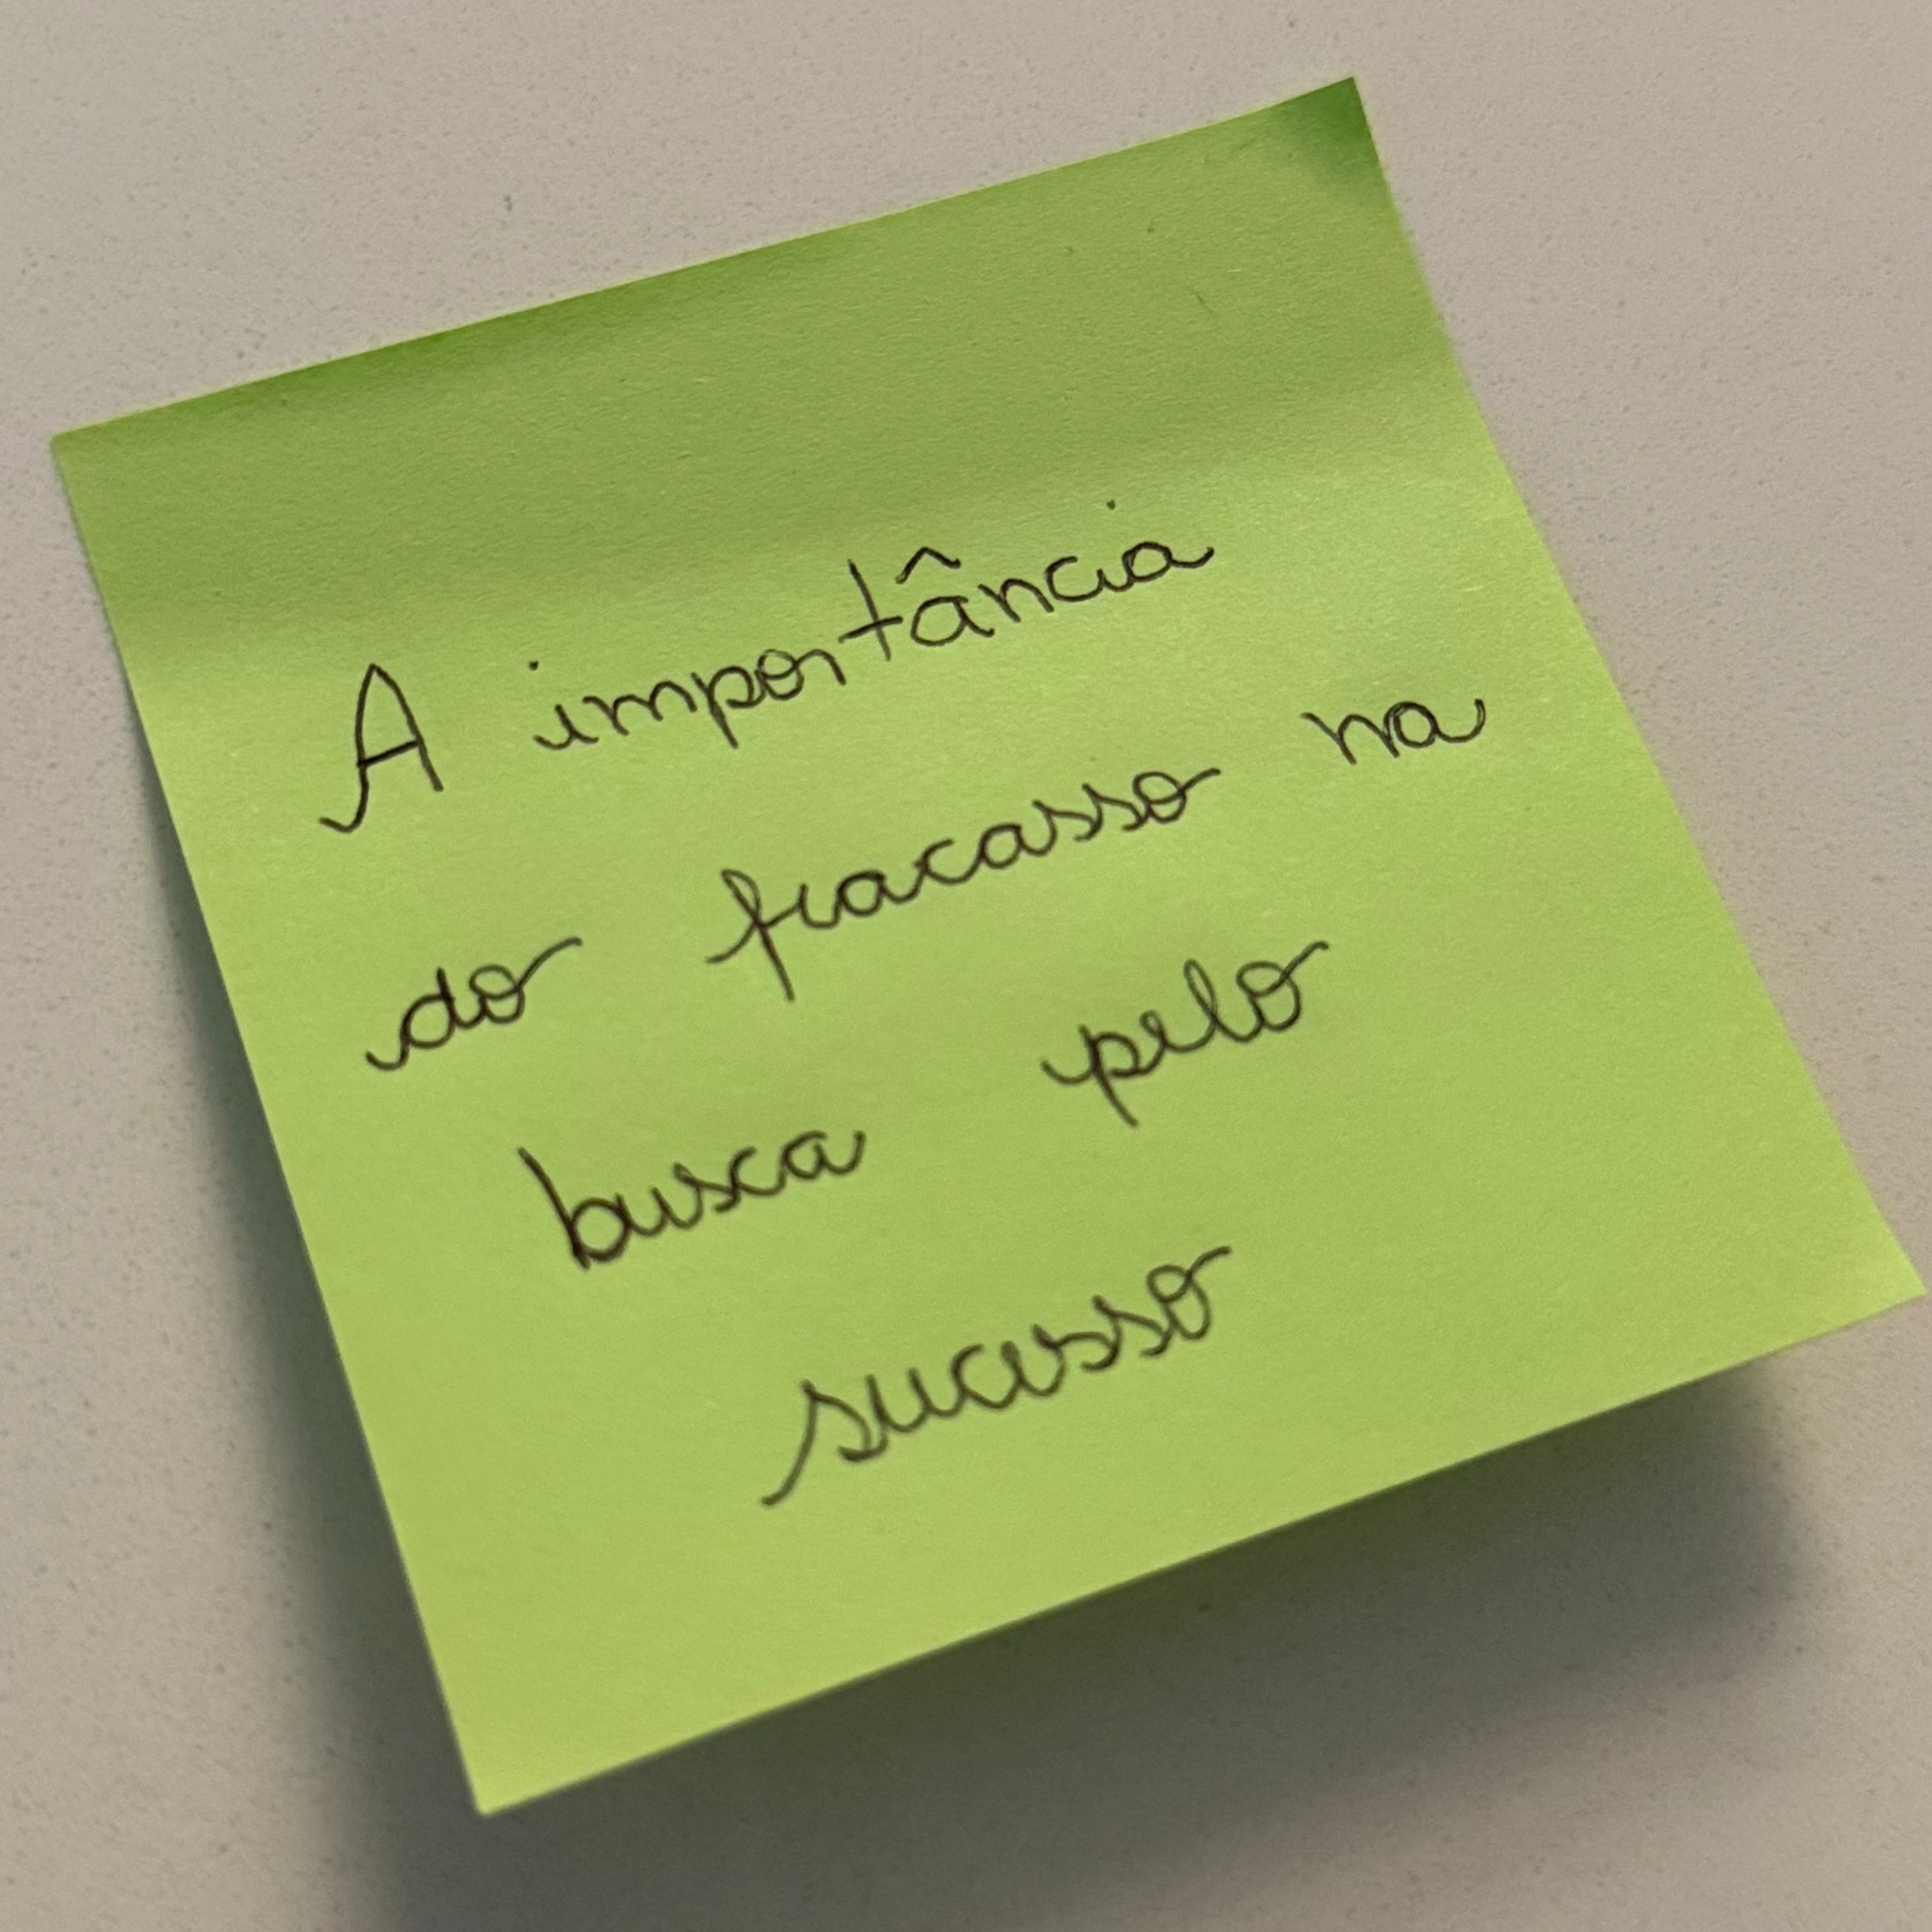 A importância
do fracasso na
busca pelo
sucesso